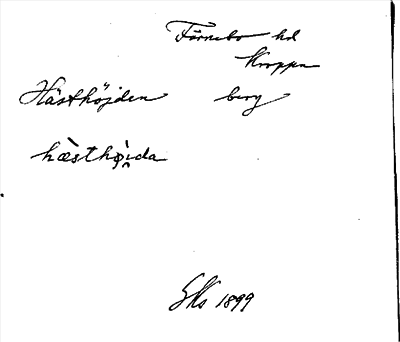 Färnebo hd
Kroppa
Hästhöjden berg
hæ̀sthø̀i̯da
SKs 1899